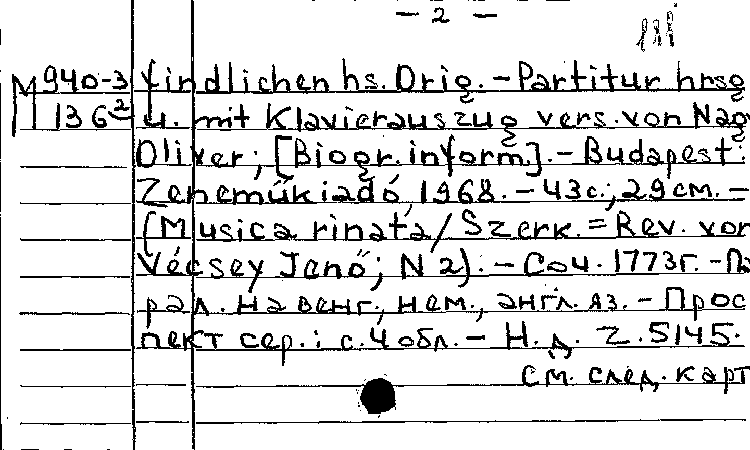 — 2 —
М 940-3 findlichen hs. Orig. – Partitur hrsg
136² u. mit Klavierauszug vers. von Nag
Oliver; [Biogr. inform.]. – Budapest:
Zeneműkiadó, 1968. – 43 с.; 29 см. –
(Musica rinata / Szerk. = Rev. von
Vécsey Jenő; N 2). – Соч. 1773 г. – Па
рал. на венг., нем., англ. яз. – Прос
пект сер.: с. 4 обл. – Н. д. Z. 5145.
См. след. карт